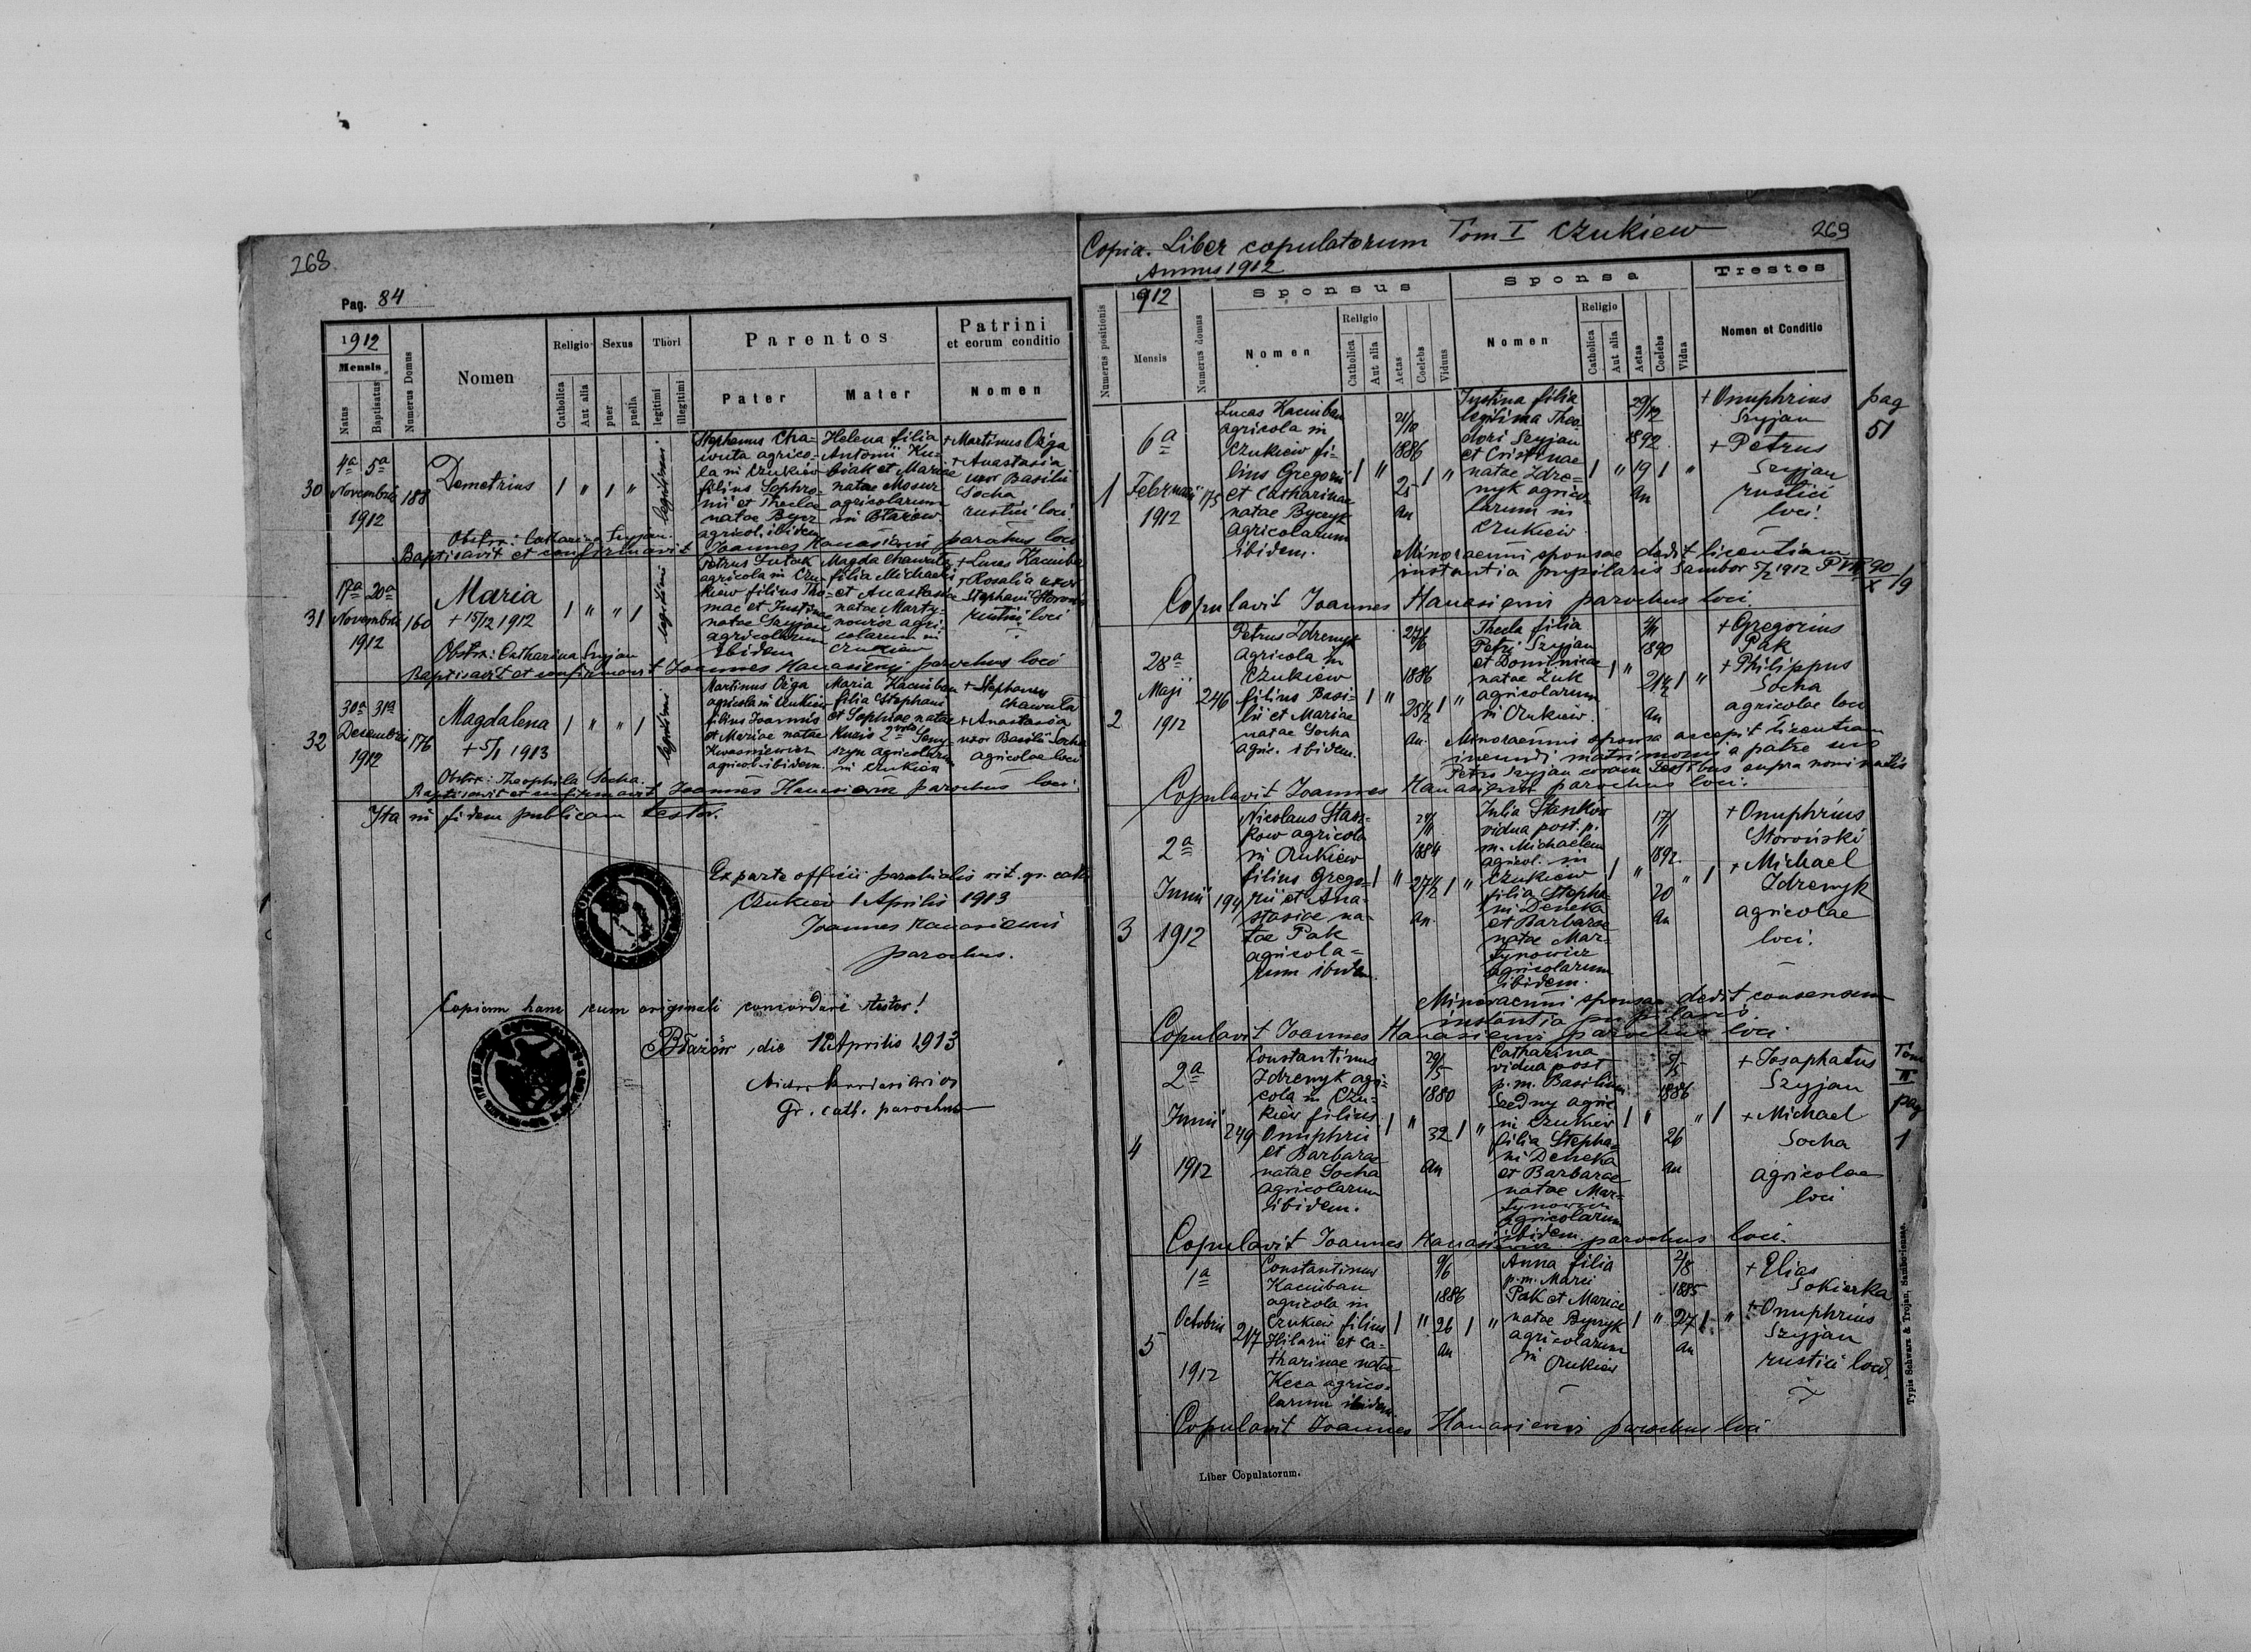 268
Pag. 84
1912
Mensis
Natus
Baptisatus
Numerus Domus
Nomen
Religio
Catholica
Aut alia
Sexus
puer
puella
Thori
legitimi
illegitimi
Parentes
Pater
Mater
Patrini
et eorum conditio
Nomen
30
4a 5a
Novembris
1912
188
Demetrius
1 " 1 "
legitimi
Stephanus Cha-
wuta agrico-
la in Czukiew
filius Sophro-
nii et Theclae
natae Bycz
agricol. ibidem
Helena filia
Antonii Ku-
biak et Mariae
natae Mosur
agricolarum
in Błażow.
+ Martinus Oiga
+ Anastasia
uxor Basilii
Socha
rustici loci
Obstrx: Catharina Szyjan.
Baptisavit et confirmavit Joannes Hanasiewicz parochus loci
31
17a 20a
Novembris
1912
160
Maria
+ 15/12 1912
1 " " 1
legitimi
Petrus Dutak
agricola in Czu-
kiew filius Tho-
mae et Justinae
natae Szyjan
agricolarum
ibidem
Magda Chawuta
filia Michaelis
et Anastasiae
natae Marty-
nowicz agri-
colarum in
Czukiew
+ Lucas Kaciuban
+ Rosalia uxor
Stephani Storoński
rustici loci
Obstrx: Catharina Szyjan
Baptisavit et confirmavit Joannes Hanasiewicz parochus loci
32
30a 31a
Decembris
1912
176
Magdalena
+ 5/1 1913
1 " " 1
legitimi
Martinus Oiga
agricola in Czukiew
filius Joannis
et Mariae natae
Kwasniewicz
agricol. ibidem.
Maria Kaciuban
filia Stephani
et Sophiae natae
agricolarum
in Czukiew
+ Stephanus
Chawuta
+ Anastasia
uxor Basilii Socha
agricolae loci
Obstrx: Theophila Socha.
Baptisavit et confirmavit Joannes Hanasiewicz parochus loci.
Ita in fidem publicam testor.
Ex parte officii parochialis rit. gr. cath.
Czukiew 1 Aprilis 1913
Joannes Hanasiewicz
parochus.
Copiam hanc cum originali concordare testor!
Błażów, die 12 Aprilis 1913
Gr. cath. parochus
269
Copia. Liber copulatorum Tom I Czukiew
Annus 1912
Numerus positionis
1912
Mensis
Numerus domus
Sponsus
Nomen
Religio
Catholica
Aut alia
Aetas
Coelebs
Viduus
Sponsa
Nomen
Religio
Catholica
Aut alia
Aetas
Coelebs
Vidua
Trestes
Nomen et Conditio
1
6a
Februarii
1912
175
Lucas Kaciuban
agricola in
Czukiew fi-
lius Gregorii
et Catharinae
natae Byczyk
agricolarum
ibidem.
1 "
21/10
1886
25
an
1 "
Justina filia
legitima Theo-
dori Szyjan
et Cristinae
natae Zdre-
nyk agrico-
larum in
Czukiew
1 "
29/12
1892
19
an
1 "
+ Onuphrius
Szyjan
+ Petrus
Szyjan
rustici
loci.
pag
51
Minorenni sponsae dedit licentiam
instantia pupilaris Sambor 5/2 1912
Copulavit Joannes Hanasiewicz parochus loci
2
28a
Maji
1912
246
Petrus Zdrenyk
agricola in
Czukiew
filius Basi-
lii et Mariae
natae Socha
agric. ibidem.
1 "
27/6
1886
25 1/2
an.
1 "
Thecla filia
Petri Szyjan
et Dominicae
natae Żuk
agricolarum
in Czukiew.
1 "
1890
21 1/2
an
1 "
+ Gregorius
Pak
+ Philippus
Socha
agricolae loci
Minorennis sponsa accepit licentiam
ineundi matrimonii a patre suo
Petro Szyjan coram testibus supra nominatis
Copulavit Joannes Hanasiewicz parochus loci.
3
2a
Junii
1912
194
Nicolaus Stan-
kow agricola
in Czukiew
filius Grego-
rii et Ana-
stasiae na-
tae Pak
agricola-
rum ibidem.
1 "
1884
27 1/2
an.
1 "
Julia Stanków
vidua post. p.
m. Michaelem
agricol. in
Czukiew
filia Stepha-
ni Deneka
et Barbarae
natae Mar-
tynowicz
agricolarum
ibidem.
1 "
17/11
1892
20
an
" 1
+ Onuphrius
Storoński
+ Michael
Zdrenyk
agricolae
loci.
Minorenni sponsae dedit consensum
instantia pupilaris.
Copulavit Joannes Hanasiewicz parochus loci.
4
2a
Junii
1912
249
Constantinus
Zdrenyk agri-
cola in Czu-
kiew filius
Onuphrii
et Barbarae
natae Socha
agricolarum
ibidem.
1 "
29/5
1880
32
an
1 "
Catharina
vidua post
p. m. Basilium
Szedny agric.
in Czukiew
filia Stepha-
ni Deneka
et Barbarae
natae Mar-
tynowicz
agricolarum
ibidem.
1 "
5/5
1886
26
an
" 1
+ Josaphatus
Szyjan
+ Michael
Socha
agricolae
loci
Tom
II
pag
1
Copulavit Joannes Hanasiewicz parochus loci.
5
1a
Octobris
1912
217
Constantinus
Kaciuban
agricola in
Czukiew filius
Hilarii et Ca-
tharinae natae
Keca agrico-
larum ibidem.
1 "
9/6
1886
26
an
1 "
Anna filia
p. m. Marci
Pak et Mariae
natae Byczyk
agricolarum
in Czukiew
1 "
2/8
1885
27
an
1 "
+ Elias
Sokierka
+ Onuphrius
Szyjan
rustici loci.
Copulavit Joannes Hanasiewicz parochus loci
Liber Copulatorum.
Typis Schwarz & Trojan, Sambor